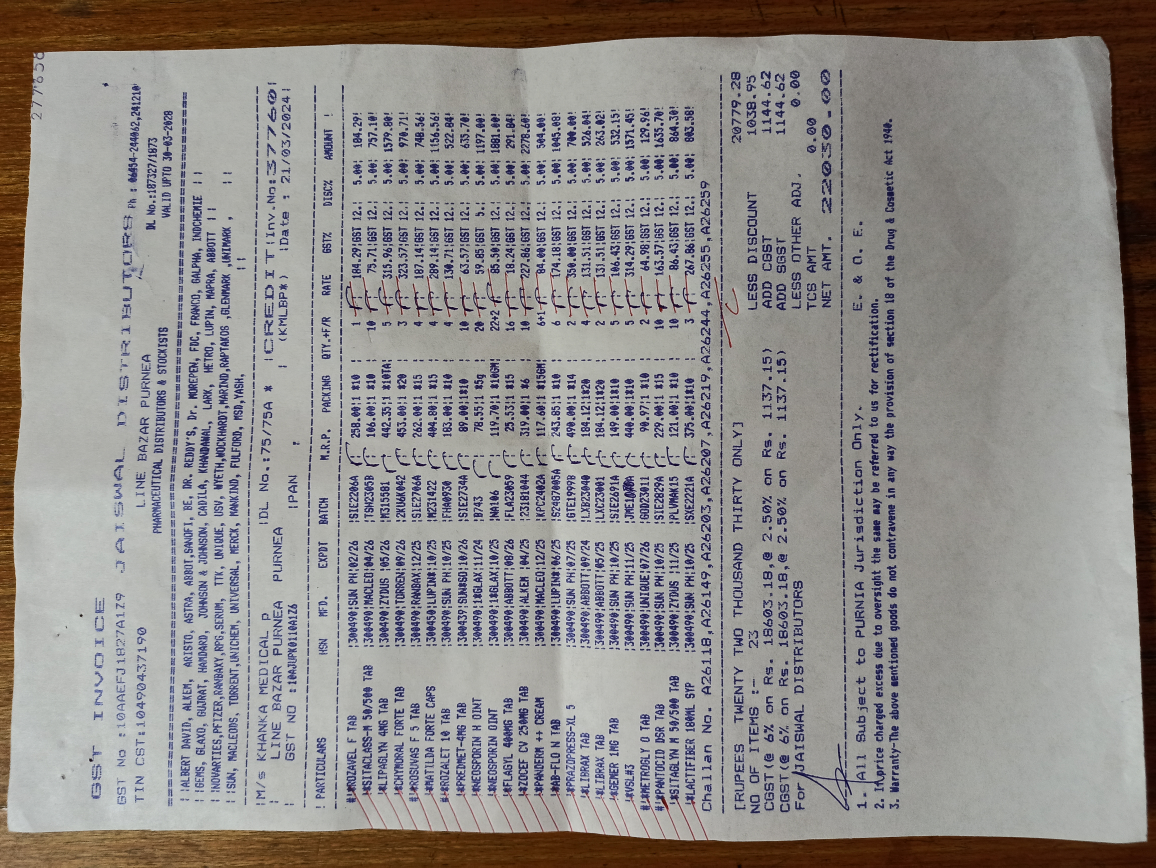 277656
GST INVOICE
GST No :10AAEFJ1827A1Z9 JAISWAL DISTRIBUTORS Ph : 06454-244062,241210
TIN CST:10490437190 LINE BAZAR PURNEA
PHARMACEUTICAL DISTRIBUTORS & STOCKISTS
DL No.:18732?/1873
VALID UPTO 30-03-2028
!!ALBERT DAVID, ALKEM, ARISTO, ASTRA, ABBOT,SANOFI, BE, DR. REDDY'S, Dr. MOREPEN, FDC, FRANCO, GALPHA, INDCHEMIE !!
!GEMS, GLAXO, GUJRAT, HAMDARD, JOHNSON & JOHNSON, CADILA, KHANDAWAL, LARK, HETRO, LUPIN, MAPRA, ABBOTT !!
!NOVARTIES,PFIZER,RANBAXY,RPG,SERUM, TTK, UNIQUE, USV, WYETH,WOCKHARDT,MARIND,RAPTAKOS ,GLENMARK ,UNIMARK , !!
!SUN, MACLEODS, TORRENT,UNICHEM, UNIVERSAL, MERCK, MANKIND, FULFORD, MSD,YASH, !!
!M/s KHANKA MEDICAL p !DL No.:75/75A * !CREDIT!Inv.No:37760!
! LINE BAZAR PURNEA PURNEA ! (KMLBP*) !Date : 21/03/2024!
! GST NO :10AJUPK0110A1Z6 !PAN !
! PARTICULARS HSN MFD. EXPDT BATCH M.R.P. PACKING QTY.+F/R RATE GST% DISC% AMOUNT !
#!*ROZAVEL F TAB !300490!SUN PH!02/26 !SIE2206A 258.00!1 #10 1 184.29!GST 12.! 5.00! 184.29!
!*SITACLASS-M 50/500 TAB !300490!MACLEO!04/26 !TSH2305B 106.00!1 #10 10 75.71!GST 12.! 5.00! 757.10!
!*LIPAGLYN 4MG TAB !300490!ZYDUS !05/26 !M315581 442.35!1 #10TA! 5 315.96!GST 12.! 5.00! 1579.80!
!*CHYMORAL FORTE TAB !300490!TORREN!09/26 !2KUGK042 453.00!1 #20 3 323.57!GST 12.! 5.00! 970.71!
#!*ROSUVAS F 5 TAB !300490!RANBAX!12/25 !SIE2706A 262.00!1 #15 4 187.14!GST 12.! 5.00! 748.56!
!*MATILDA FORTE CAPS !300450!LUPIN#!10/25 !M231422 404.80!1 #15 4 289.14!GST 12.! 5.00! 1156.56!
#!*ROZALET 10 TAB !300490!SUN PH!10/25 !FHA0930 183.00!1 #10 4 130.71!GST 12.! 5.00! 522.84!
!*PREXMET-4MG TAB !300439!SUN@SO!10/26 !SIE2734A 89.00!1 #10 10 63.57!GST 12.! 5.00! 635.70!
!*NEOSPORIN H OINT !300490!@GLAX!11/24 !D743 78.55!1 #5g 20 59.85!GST 5. 5.00! 1197.00!
!*NEOSPORIN OINT !300490!@GLAX!10/25 !NA106 119.70!1 #10GM! 22+2 85.50!GST 12.! 5.00! 1881.00!
!*FLAGYL 400MG TAB !300490!ABBOTT!08/26 !FLA23059 25.53!1 #15 16 18.24!GST 12.! 5.00! 291.84!
!*ZOCEF CV 250MG TAB !300490!ALKEM !04/25 !23181044 319.00!1 #6 10 227.86!GST 12.! 5.00! 2278.60!
!*PANDERM ++ CREAM !300490!MACLEO!12/25 !KPC2402A 117.60!1 #15GM! 6+1 84.00!GST 12.! 5.00! 504.00!
!*AB-FLO N TAB !300490!LUPIN@!06/25 !S24B7005A 243.85!1 #10 6 174.18!GST 12.! 5.00! 1045.08!
#!*PRAZOPRESS-XL 5 !300490!SUN PH!07/25 !GTE1999B 490.00!1 #14 2 350.00!GST 12.! 5.00! 700.00!
!*LIBRAX TAB !300490!ABBOTT!09/24 !LXB23040 184.12!1#20 4 131.51!GST 12.! 5.00! 526.04!
!*LIBRAX TAB !300490!ABBOTT!05/25 !LXC23001 184.12!1#20 2 131.51!GST 12.! 5.00! 263.02!
!*GEMER 1MG TAB !300490!SUN PH!10/25 !SIE2691A 149.00!1#10 5 106.43!GST 12.! 5.00! 532.15!
!*VSL#3 !300490!SUN PH!11/25 440.00!1#10 5 314.29!GST 12.! 5.00! 1571.45!
#!*METROGLY O TAB !300490!UNIQUE!07/26 !GOD23011 90.97!1 #10 2 64.98!GST 12.! 5.00! 129.96!
#!*PANTOCID DSR TAB !300490!SUN PH!10/25 !SIE2829A 229.00!1 #15 10 163.57!GST 12.! 5.00! 1635.70!
!*SITAGLYN M 50/500 TAB !300490!ZYDUS !11/25 !PLVMAK15 121.00!1 #10 10 86.43!GST 12.! 5.00! 864.30!
!*LACTIFIBER 180ML SYP !300490!SUN PH!10/25 !SXE2221A 375.00!1#10 3 267.86!GST 12.! 5.00! 803.58!
Challan No. A26118,A26149,A26203,A26207,A26219,A26244,A26255,A26259
20779.28
[RUPEES TWENTY TWO THOUSAND THIRTY ONLY] LESS DISCOUNT 1038.95
NO OF ITEMS :- 23 ADD CGST 1144.62
CGST(@ 6% on Rs. 18603.18,@ 2.50% on Rs. 1137.15) ADD SGST 1144.62
CGST(@ 6% on Rs. 18603.18,@ 2.50% on Rs. 1137.15) LESS OTHER ADJ. 0.00
For JAISWAL DISTRIBUTORS TCS AMT 0.00
NET AMT. 22030.00
1. All Subject to PURNIA Jurisdiction Only. E. & O. E.
2. In,price charged excess due to oversight the same may be referred to us for rectification.
3. Warranty-The above mentioned goods do not contravene in any way the provision of section 18 of the Drug & Cosmetic Act 1940.